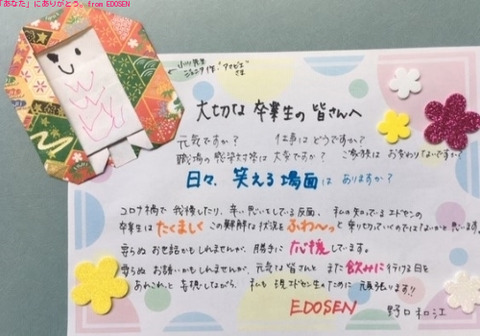 「あなた」にありがとう。from EDOSEN
ジュニア作・"アマビエ"
大切な 卒業生の皆さんへ
元気ですか? 仕事はどうですか?
職場の感染対策は 大変ですか? ご家族は お変わりないですか?
日々、笑える場面は ありますか?
コロナ禍で 我慢したり、辛い思いをしている反面、私の知っているエドセンの
卒業生は たくましく この難解な状況を ふわ〜っと 乗り切っていくのではないかと思います。
要らぬ お世話かもしれませんが、勝手に 応援しています。
要らぬ お誘いかもしれませんが、元気な皆さんと また 飲みに行ける日を
あれこれと 妄想しながら、私も 現エドセン生のために 頑張ります!!
EDOSEN 野口和江